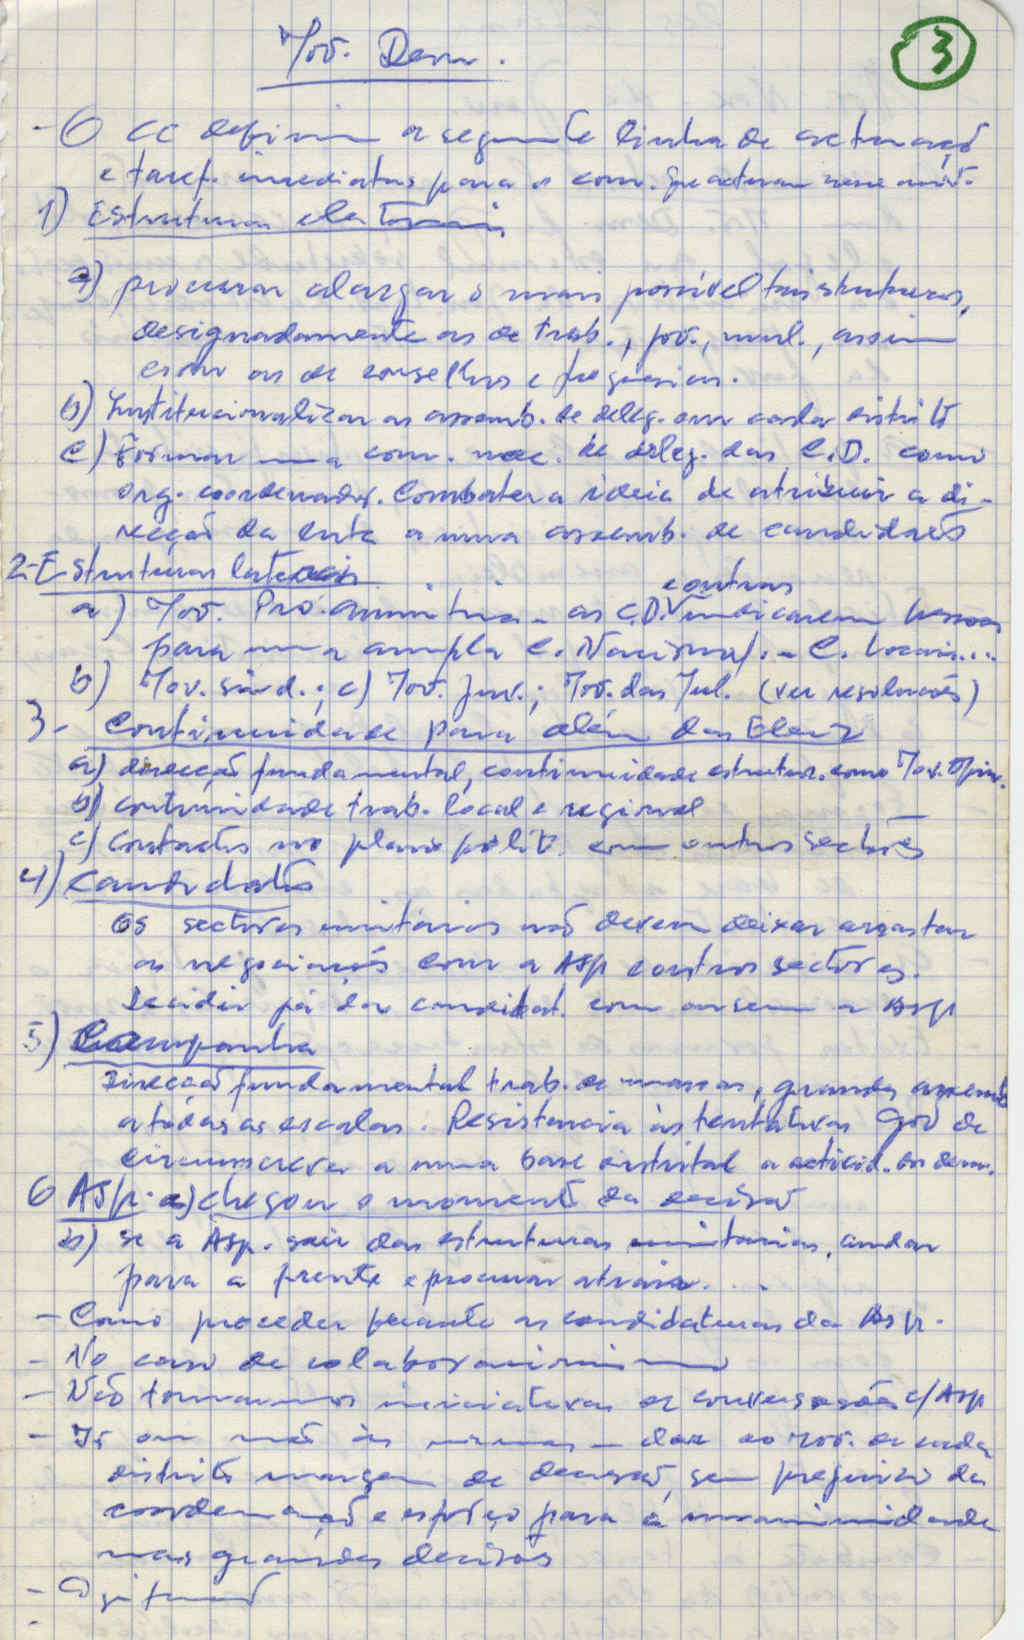 3
Mov. Dem.
- O CC definiu a seguinte linha de actuação
e taref. imediatas para os com. que actuam nesse mov.
1) Estruturas eleitorais
a) procurar alargar o mais possível tais estruturas,
designadamente as de trab., juv., mul., assim
como as de conselhos e freguesias.
b) Institucionalizar as assemb. de deleg. em cada distrito
c) Formar uma com. nac. de deleg. das C.D. como
org. coordenador. Combater a ideia de atribuir a di-
recção da luta a uma assemb. de candidatos
2- Estruturas laterais
e outras
a) Mov. Pró-amnistia - as C.D. indicarem pessoas
para uma ampla C. Nacional. - C. locais...
b) Mov. sind.; c) Mov. juv.; Mov. das Mul. (ver resoluções)
3- Continuidade para além das Eleiç
a) direcção fundamental, continuidade estrutur. como Mov. Opin.
b) continuidade trab. local e regional
c) Contactos no plano polít. com outros sectores
4) Candidatos
Os sectores unitários não devem deixar arrastar
as negociações com a ASP e outros sectores.
Decidir já dar candidat. com ou sem a ASP
5) Campanha
Direcção fundamental trab. de massas, grandes assemb
a todas as escalas. Resistência às tentativas Gov de
circunscrever a uma base distrital a activid. os dem.
6 ASP. a) chegou o momento da decisão
b) se a Asp. sair das estruturas unitárias, andar
para a frente e procurar atrair. ...
- Como proceder perante as candidaturas da Asp.
- No caso de colaboracionismo
- Não tomarmos iniciativas de conversações c/ Asp
- Ir ou não às urnas - dar ao mov. de cada
distrito margem de decisão, sem prejuízo da
coordenação e esforço para a unanimidade
nas grandes decisões
- Agitação
-